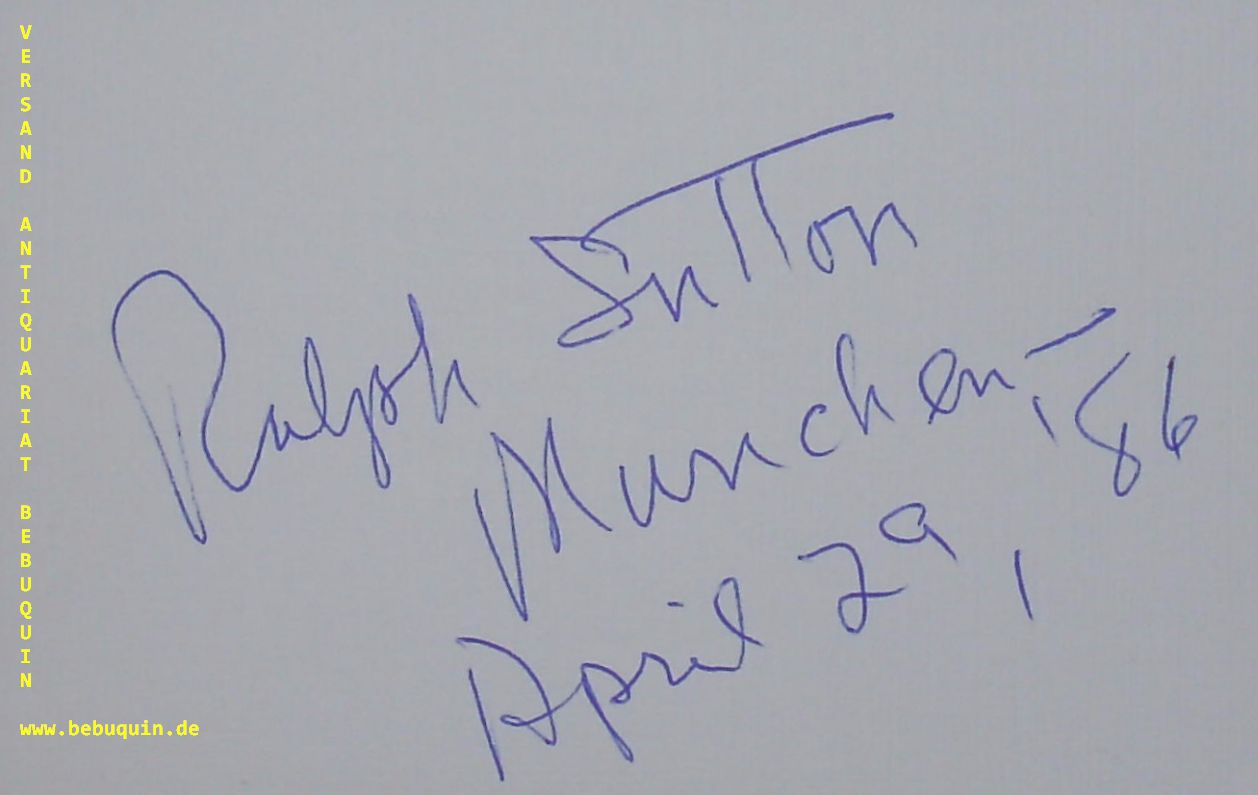 VERSAND ANTIQUARIAT BEBUQUIN
www.bebuquin.de
Ralph Sutton
Munchen '86
April 29,